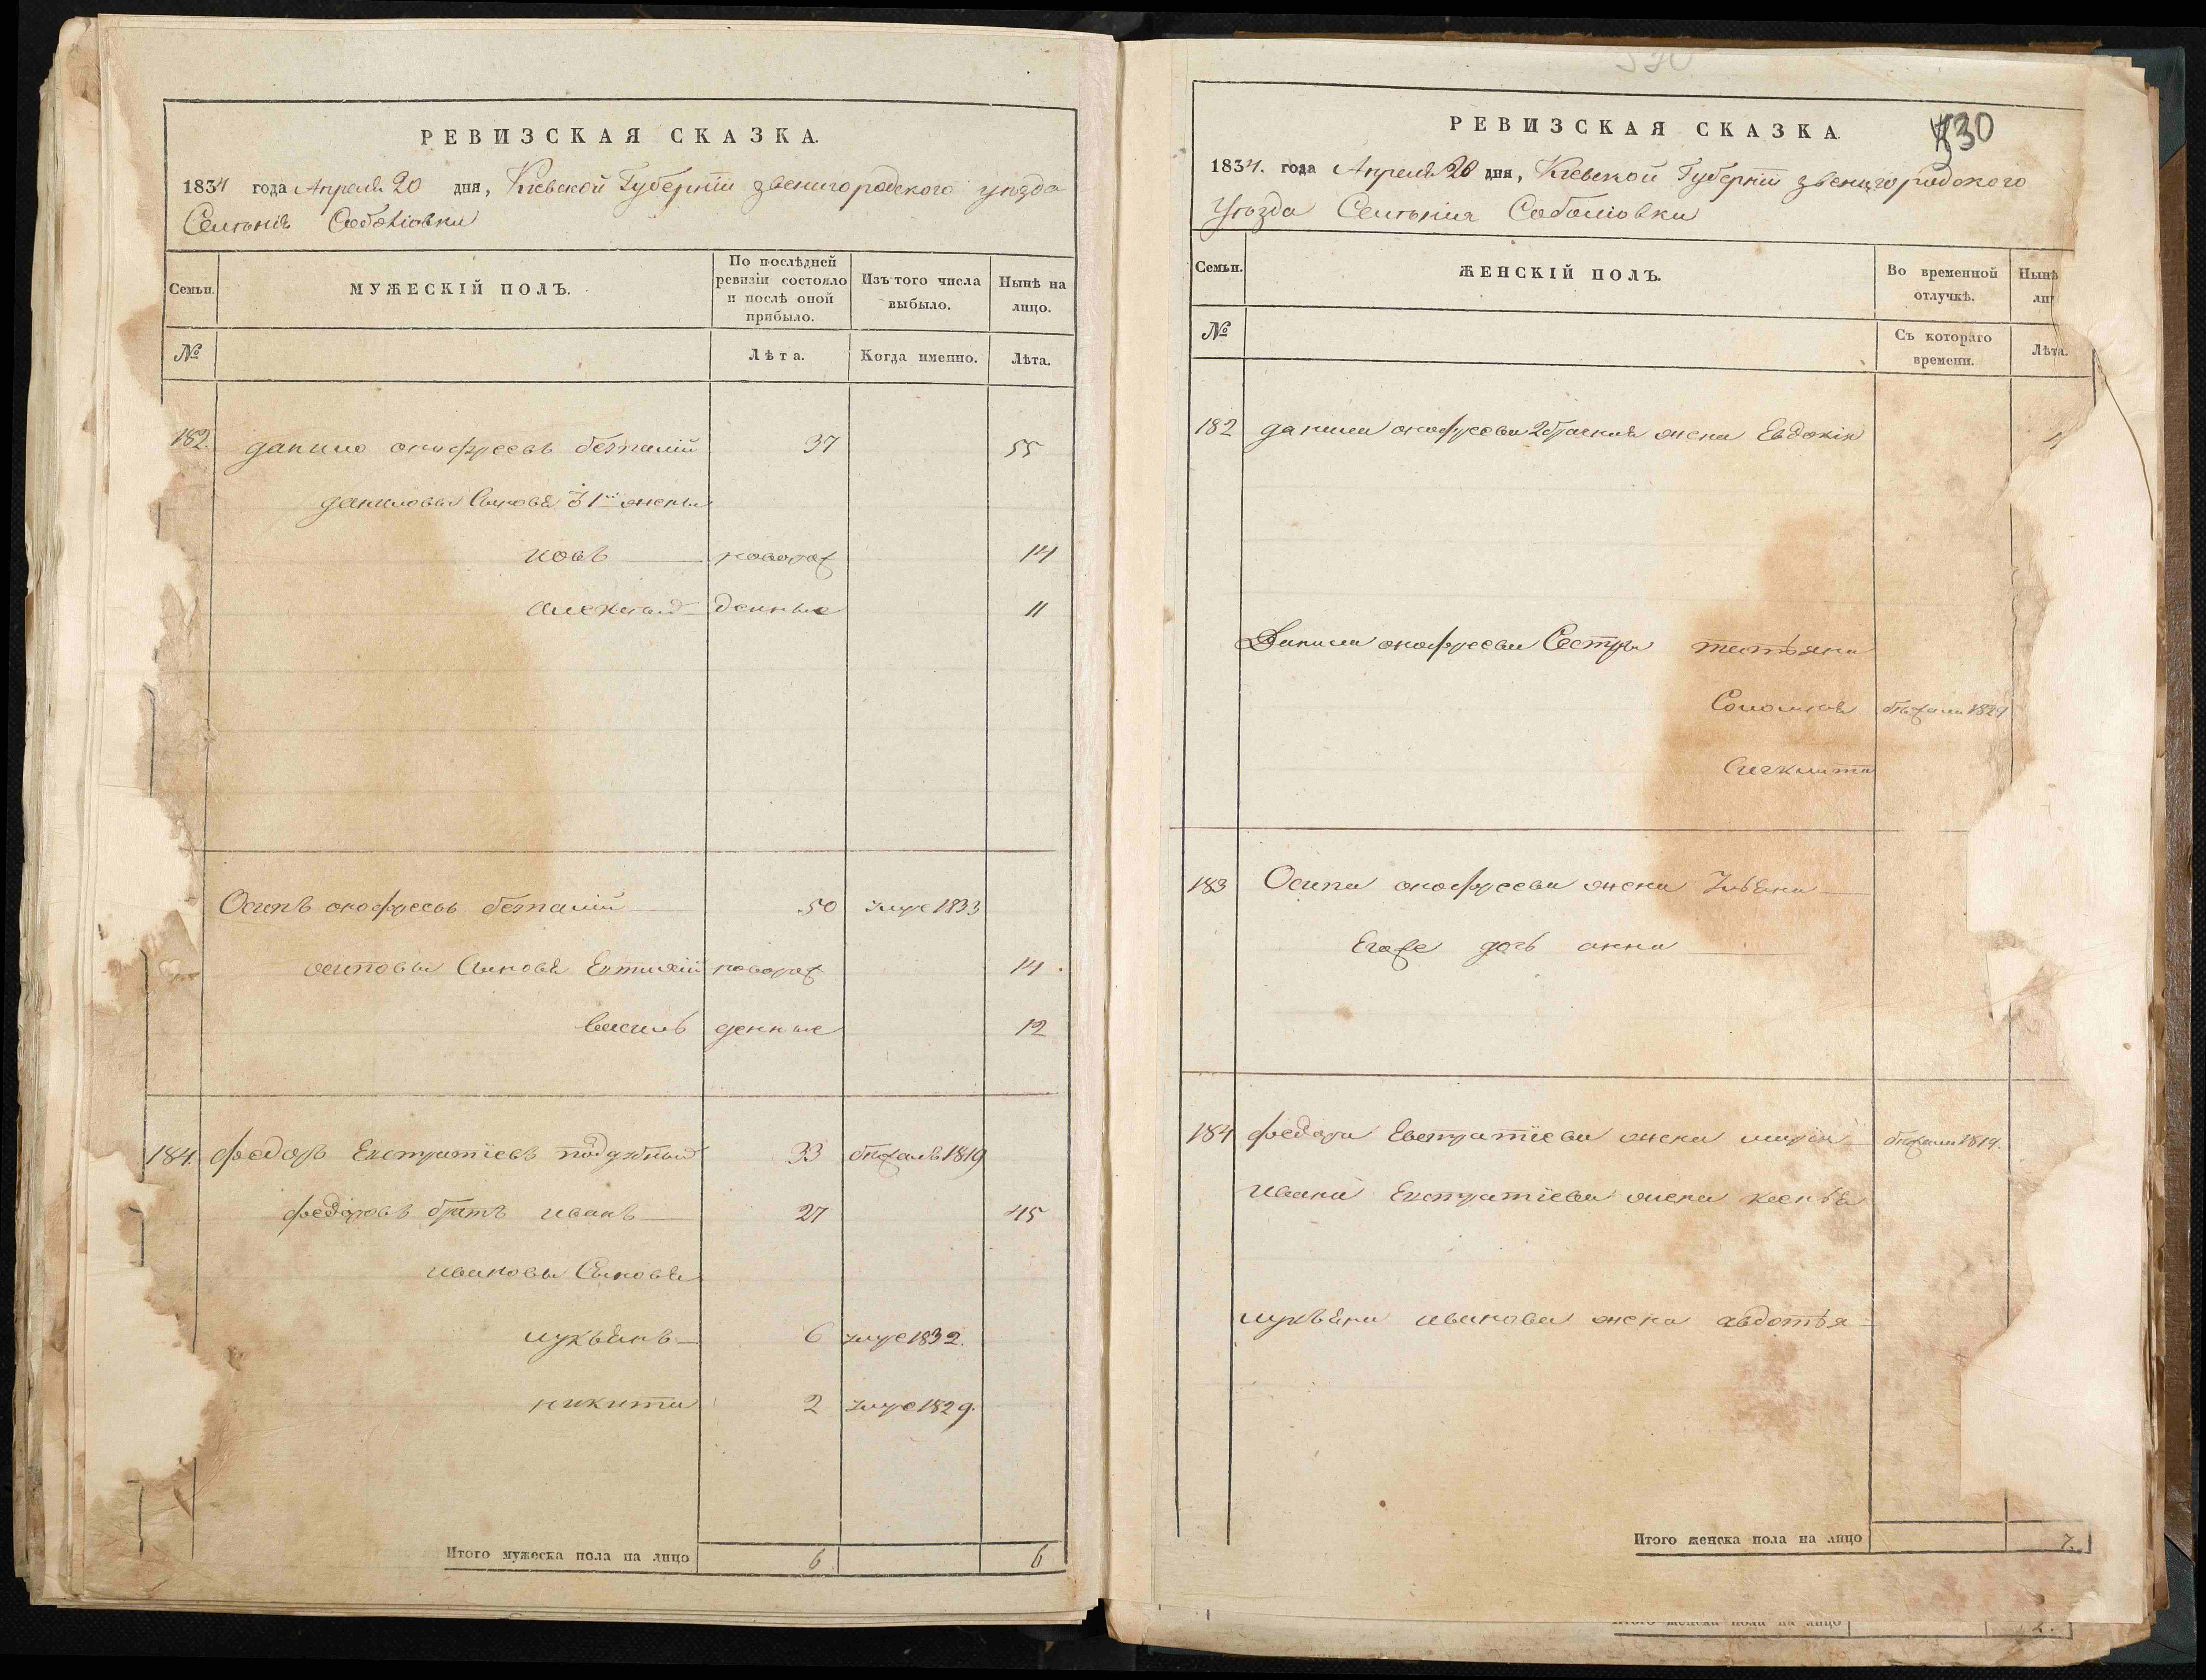 РЕВИЗСКАЯ СКАЗКА.
1834 года Апреля 20 дня, Кіевской Губерніи звенигородского уѣзда
Селѣнія Соболіовки
Семьи.
МУЖЕСКІЙ ПОЛЪ.
По послѣдней ревизіи состояло и послѣ оной прибыло.
Изъ того числа выбыло.
Ныне на лицо.
№
Лѣта.
Когда именно.
Лѣта.
182. данило онофреевъ безпалій 37 55
даниловы Сыновья 1й жены
иовъ новорож 14
Александ денные 11
Осипъ онофреевъ безпалій 50 умре 1833
осиповы Сыновья Евтихій новорож 14
василь денные 12
184. федоръ Евстратіевъ 33 бежалъ 1819
федоровъ братъ иванъ 27 45
ивановы Сыновья
лукьянъ 6 умре 1832.
никита 2 умре 1829.
Итого мужеска пола на лицо 6 6
430
РЕВИЗСКАЯ СКАЗКА.
1834. года Апреля 20 дня, Кіевской Губерніи звенигородского
Уѣзда Селѣнія Соболіовки
Семьи.
ЖЕНСКІЙ ПОЛЪ.
Во временной отлучкѣ.
Нынѣ
№
Съ котораго времени.
Лѣта.
182 данила онофреева 2 брачная жена Евдокія
Данила онофреева Сестры татьяна
Соломия бежали 1829
183 Осипа онофреева жена Ульяна
Егоже дочь анна
184 федора Евстратіева жена марія бежали 1819.
ивана Евстратіева жена ксенья
лукьяна иванова жена авдотья
Итого женска пола на лицо 7.
Итого женска пола на лицо